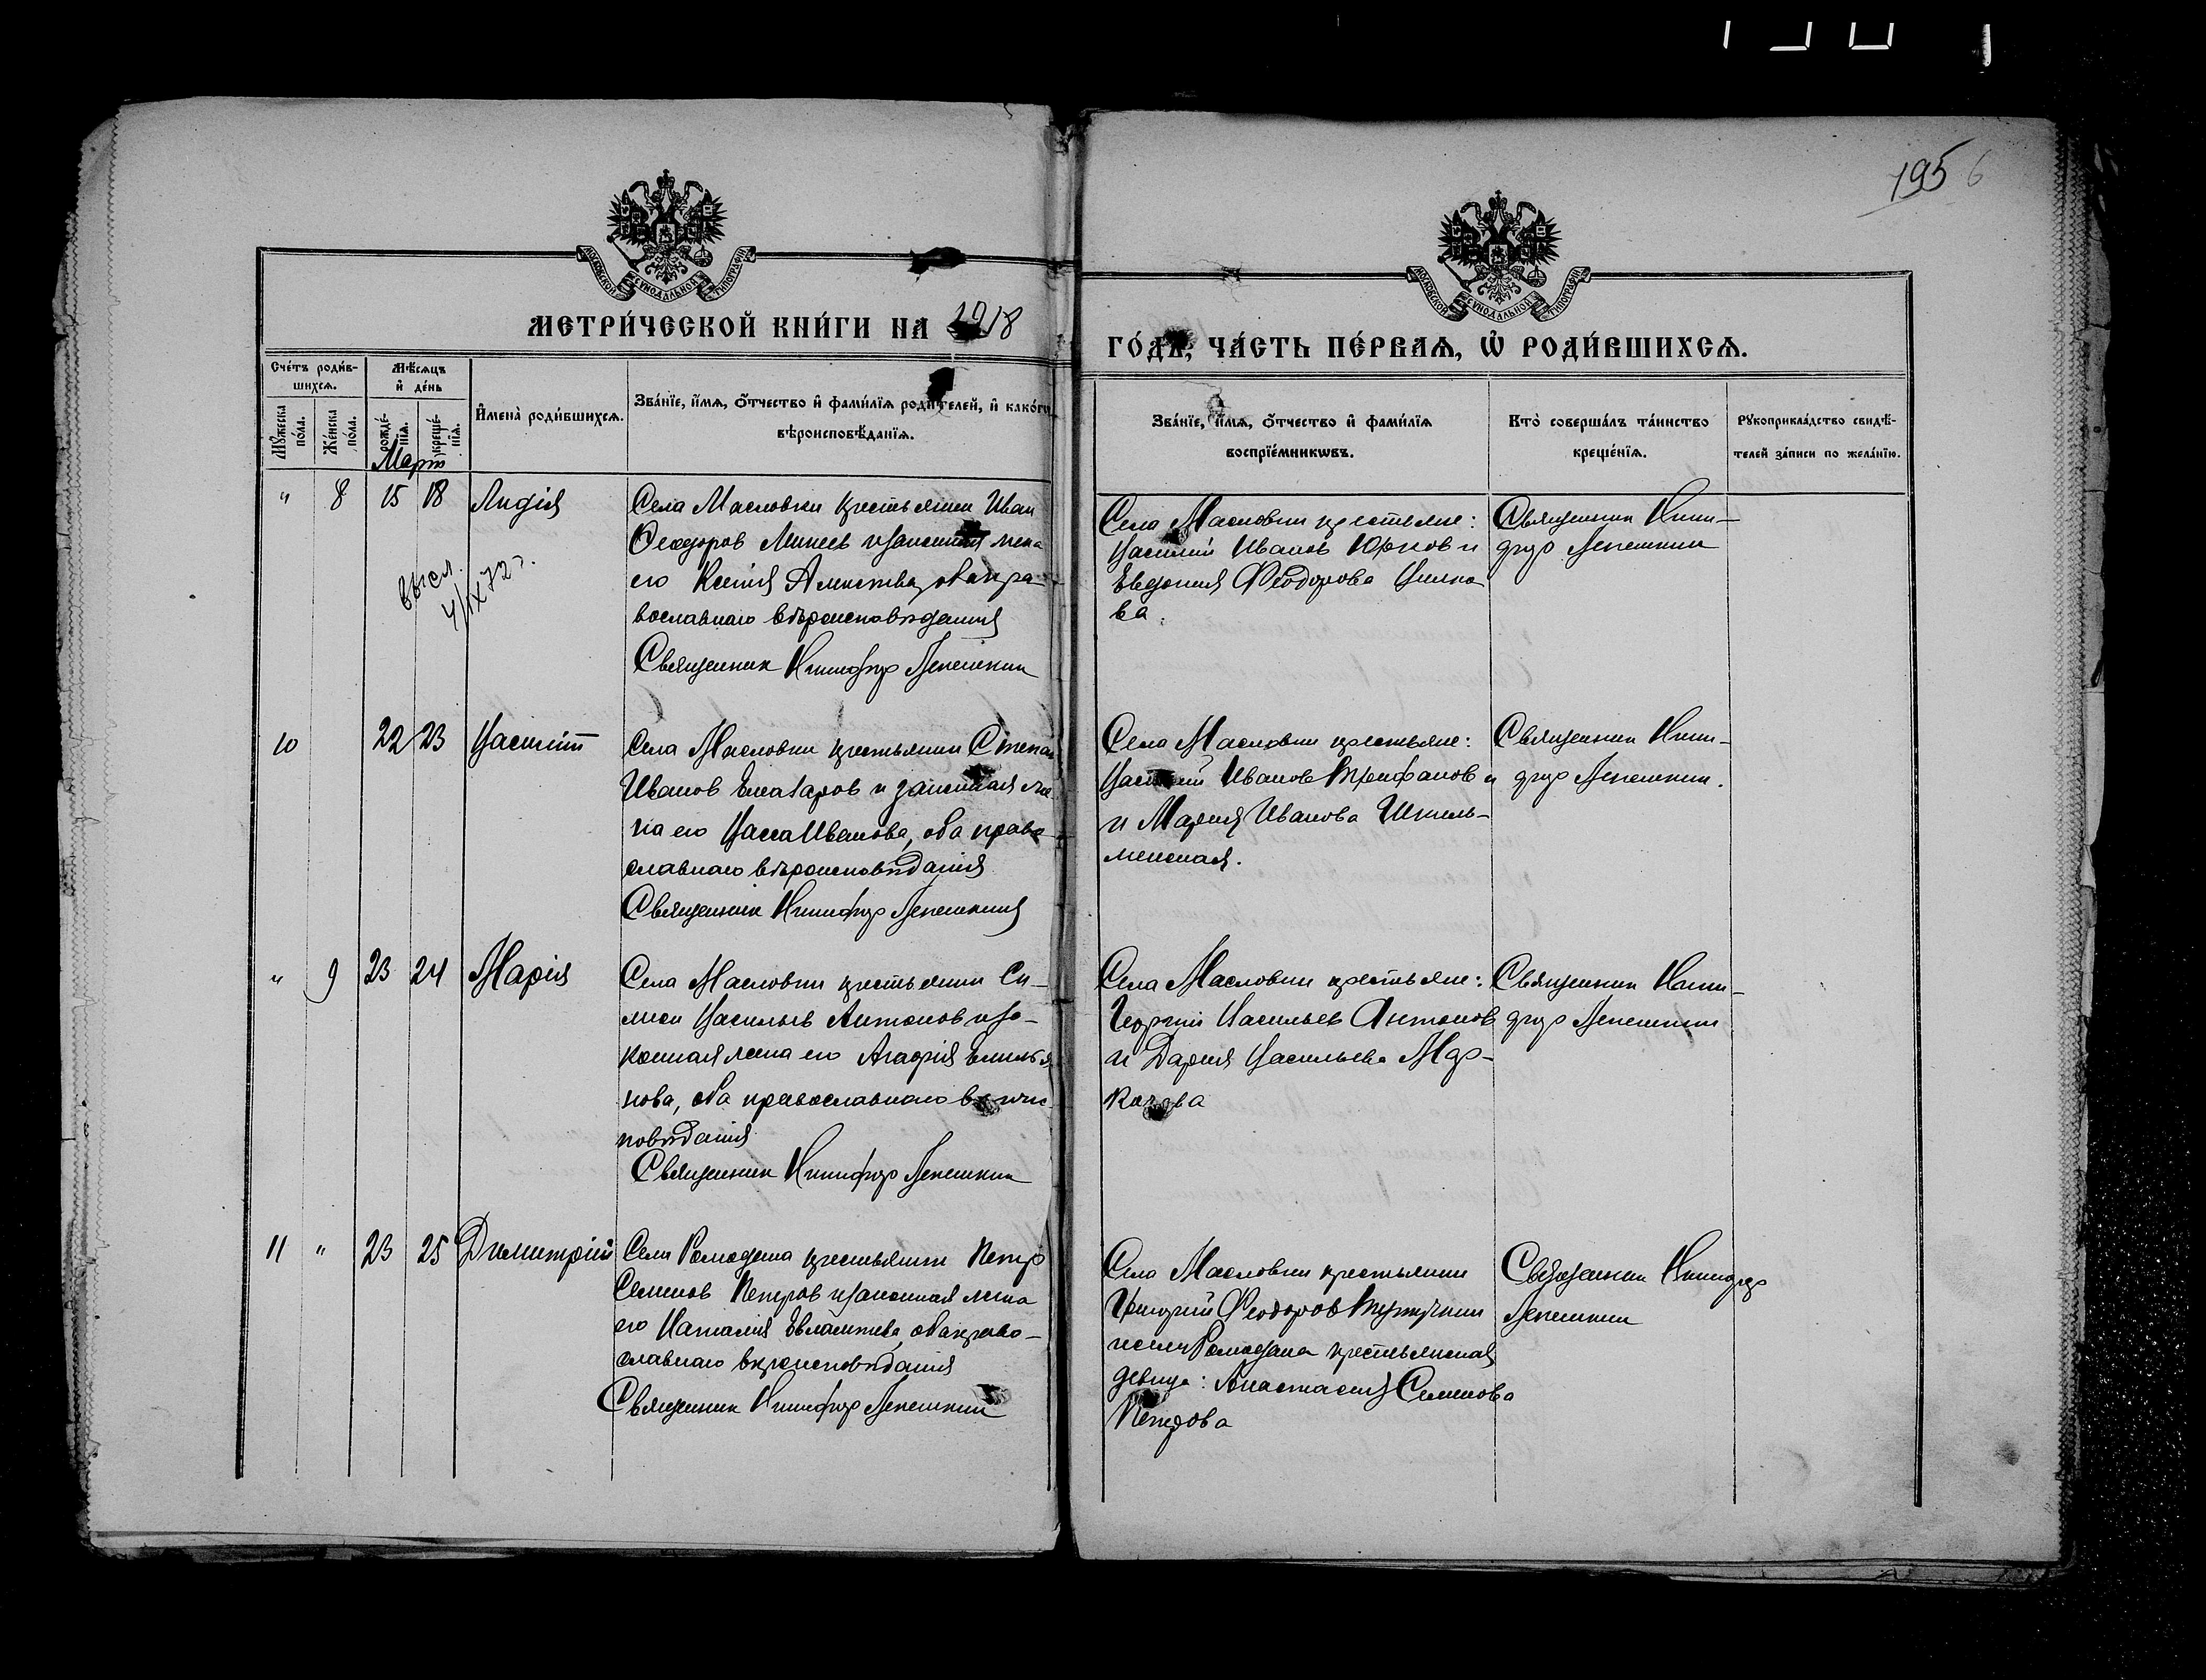 195 6
МОСКОВСКОЙ СУНОДАЛЬНОЙ ТИПОГРАФІИ
МОСКОВСКОЙ СУНОДАЛЬНОЙ ТИПОГРАФІИ
МЕТРИ́ЧЕСКОЙ КНИ́ГИ НА 1918
ГО́ДЪ, ЧА́СТЬ ПЕ́РВАѦ, Ѡ҆ РОДИ́ВШИХСѦ.
Сче́тъ роди́в-
шихсѧ.
Мѣ́сѧцъ
и҆ де́нь
Мꙋ́жеска по́ла.
Же́нска по́ла.
рожде́-нїѧ.
креще́-нїѧ.
И҆мена̀ роди́вшихсѧ.
Зва́нїе, и҆́мѧ, ѻ҆́тчество и҆ фами́лїѧ роди́телей, и҆ како́гѡ
вѣроисповѣ́данїѧ.
Зва́нїе, и҆́мѧ, ѻ҆́тчество и҆ фами́лїѧ
воспрїе́мникѡвъ.
Кто̀ соверша́лъ та́инство
креще́нїѧ.
Рꙋкоприкла́дство свидѣ́-
телей за́писи по жела́нїю.
Март
" 8 15 18 Лидія
высл.
4/IX 72 г.
Села Масловки крестьянин Иван
Феодоров Минеев и законная жена
его Ксения Алексеева, оба пра-
вославнаго вѣроисповѣдания
Священник Никифор Лепешкин
Села Масловки крестьяне:
Василий Иванов Юрков и
Евдокия Феодорова
ва.
Священник Ники-
фор Лепешкин
10 22 23 Василий
Села Масловки крестьянин Степан
Иванов и законная же-
на его Васса Иванова, оба право-
славнаго вѣроисповѣдания
Священник Никифор Лепешкин
Села Масловки крестьяне:
Василий Иванов Трифанов и
и Мария Иванова Шкиль-
менская.
Священник Ники-
фор Лепешкин.
" 9 23 24 Марія
Села Масловки крестьянин Си-
меон Васильев Антонов и за-
конная жена его Агафия Емилья-
нова, оба православнаго вѣроис-
повѣдания
Священник Никифор Лепешкин
Села Масловки крестьяне:
Георгий Васильев Антонов
и Дария Васильева Мар-
кова
Священник Ники-
фор Лепешкин
11 " 23 25 Димитрий
Села Ромодана крестьянин Петр
Семенов Петров и законная жена
его Наталия Евлампиева, оба право-
славнаго вѣроисповѣдания
Священник Никифор Лепешкин
Села Масловки крестьянин
Григорий Феодоров
и села Ромодана крестьянская
девица: Анастасия Семенова
Петрова
Священник Никифор
Лепешкин